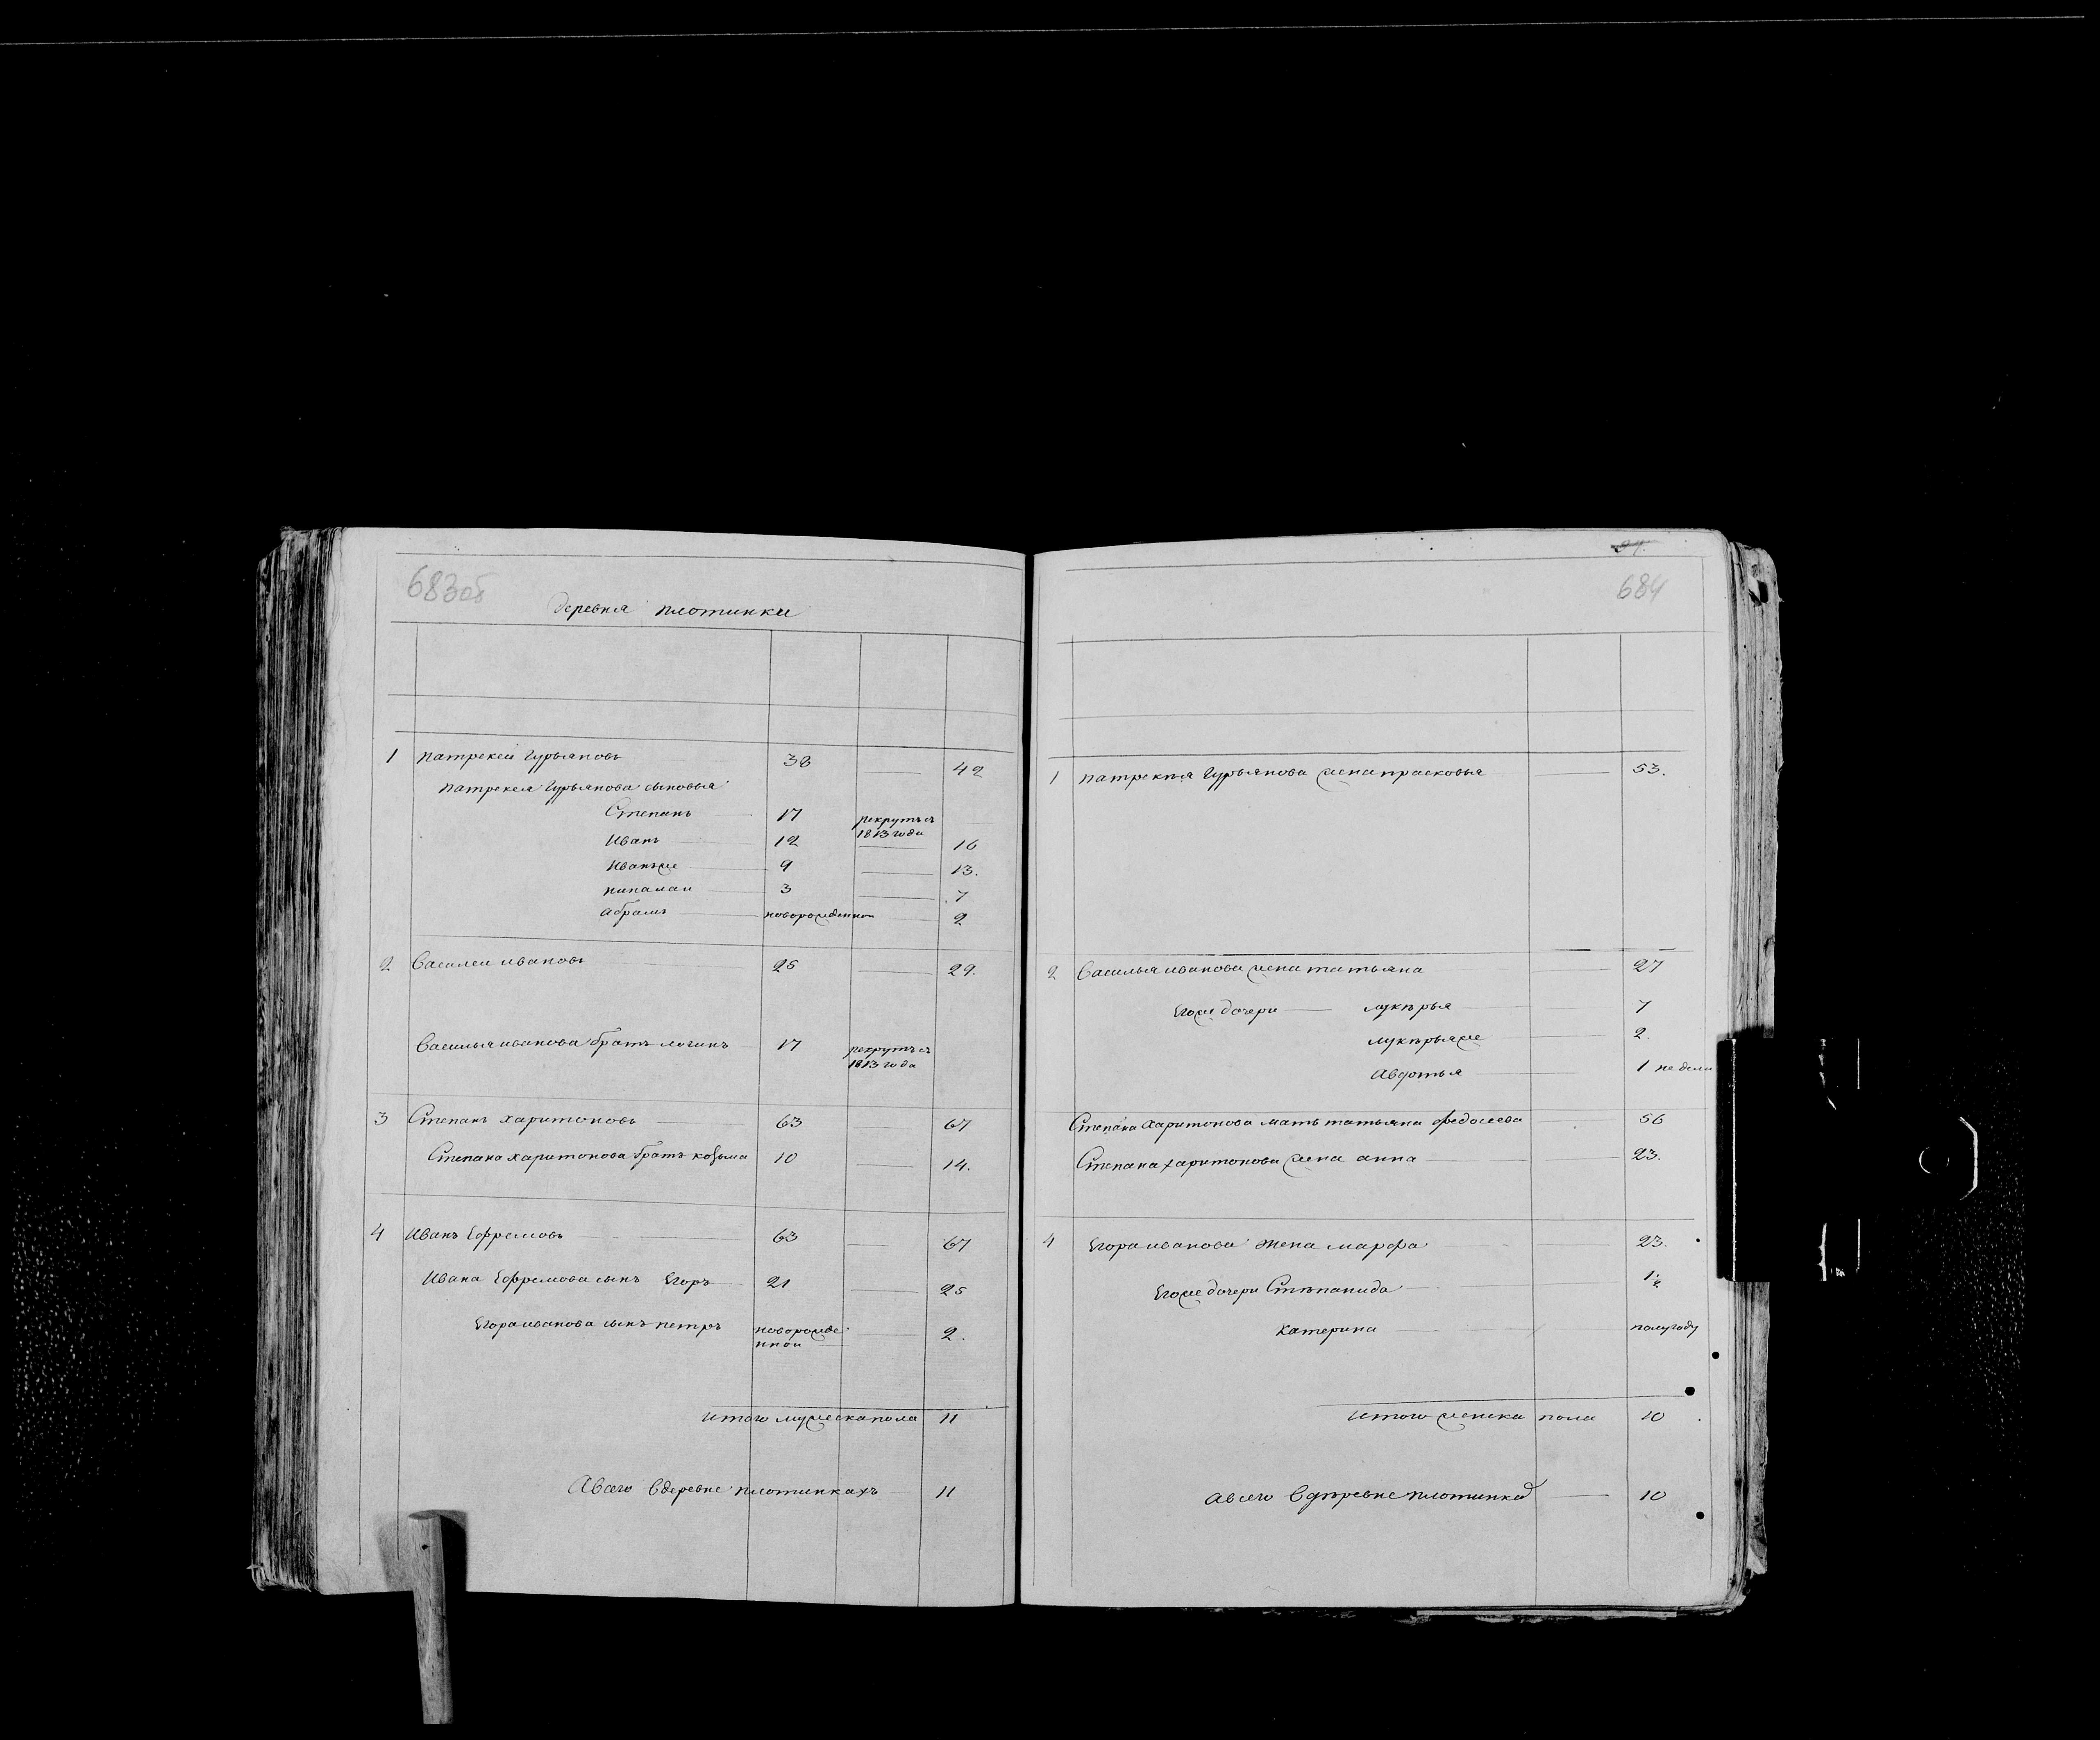 683об
деревня плотинки
1 патрекей Гурьяновъ 38 42
патрекея Гурьянова сыновья
Степанъ 17 рекрутъ съ
1813 года
Иванъ 12 16
Иванже 9 13.
николаи 3 7
абрамъ новорожденнои 2
2 Василеи ивановъ 25 29.
Василья иванова братъ логинъ 17 рекрутъ съ
1813 года
3 Степанъ харитоновъ 63 67
Степана харитонова братъ козьма 10 14.
4 Иванъ Ефремовъ 63 67
Ивана Ефремова сынъ Егоръ 21 25
Егора иванова сынъ петръ новорожде
ннои 2.
итого мужеска пола 11
А всего в деревне плотинкахъ 11
684
1 патрекея Гурьянова жена прасковья 53.
2 Василья иванова жена татьяна 27
Егоже дочери лукѣрья 7
лукѣрьяже 2.
Авдотья 1 недели
Степана Харитонова мать татьяна федосеева 56
Степана харитонова жена анна 23.
4 Егора иванова жена марфа 23.
Егоже дочери Стѣпанида 1½
Катерина полугоду
итого женска пола 10
а всего в дѣревне плотинка 10